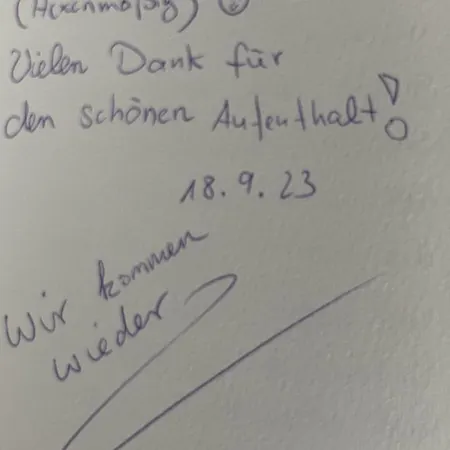 Vielen Dank für
den schönen Aufenthalt!
18.9.23
Wir kommen
wieder